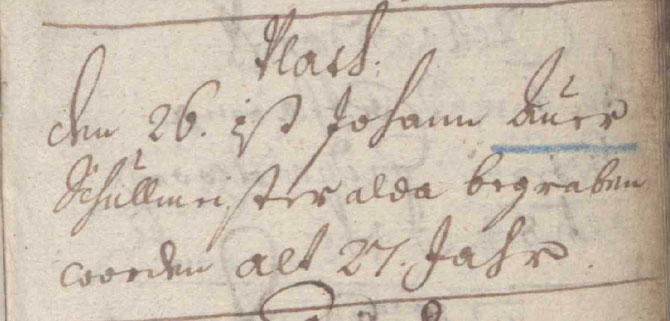 Plach.
den 26. ist Johann Auer
Schullmeister alda begraben
worden alt 27. Jahr.